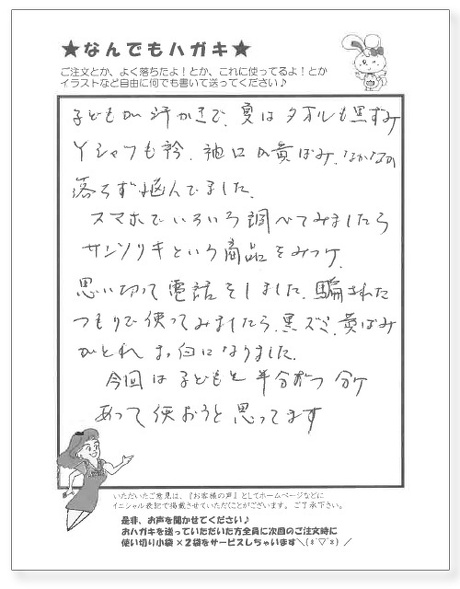 ★なんでもハガキ★
ご注文とか、よく落ちたよ！とか、これに使ってるよ！とか
イラストなど自由に何でも書いて送ってください♪
子どもが汗かきで、夏はタオルも黒ずみ
Yシャツも衿、袖口が黄ばみ、なかなか
落ちず悩んでました。
スマホでいろいろ調べてみましたら
サンソリキという商品をみつけ、
思い切って電話をしました。騙された
つもりで使ってみましたら、黒ズミ、黄ばみ
がとれ まっ白になりました。
今回は子どもと半分ずつ分け
あって使おうと思ってます
いただいたご意見は、『お客様の声』としてホームページなどに
イニシャル表記で掲載させていただくことがございます。ご了承下さい。
是非、お声を聞かせてください♪
おハガキを送っていただいた方全員に次回のご注文時に
使い切り小袋×2袋をサービスしちゃいます＼(*'▽'*)／